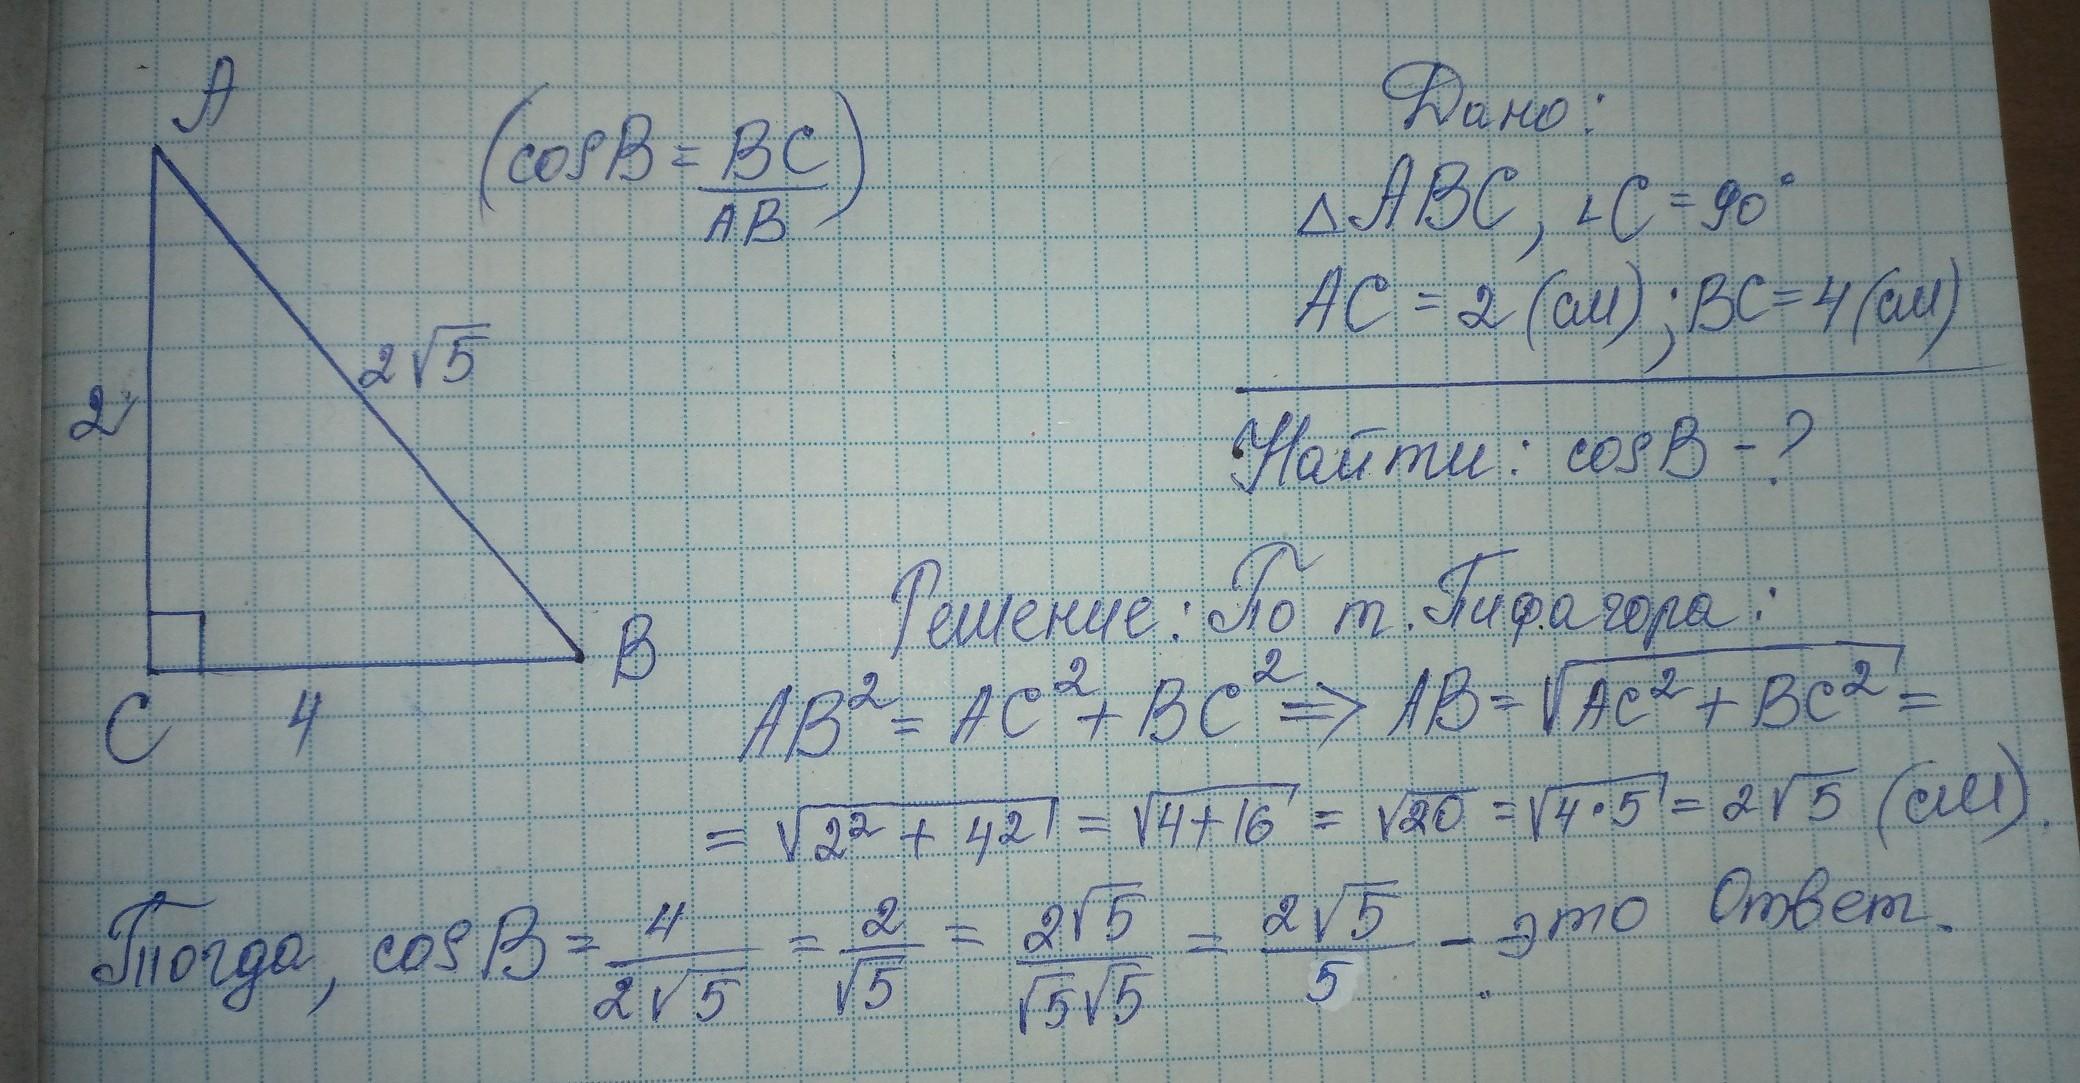 A
(cosB = BC/AB)
Дано:
△ABC, ∠C = 90°
AC = 2 (см); BC = 4 (см)
2√5
2
Найти: cosB - ?
Решение: По т. Пифагора:
B
C
4
AB² = AC² + BC² => AB = √(AC² + BC²) =
= √(2² + 4²) = √(4+16) = √20 = √(4·5) = 2√5 (см).
Тогда, cosB = 4/(2√5) = 2/√5 = 2√5/(√5√5) = 2√5/5 - это Ответ.